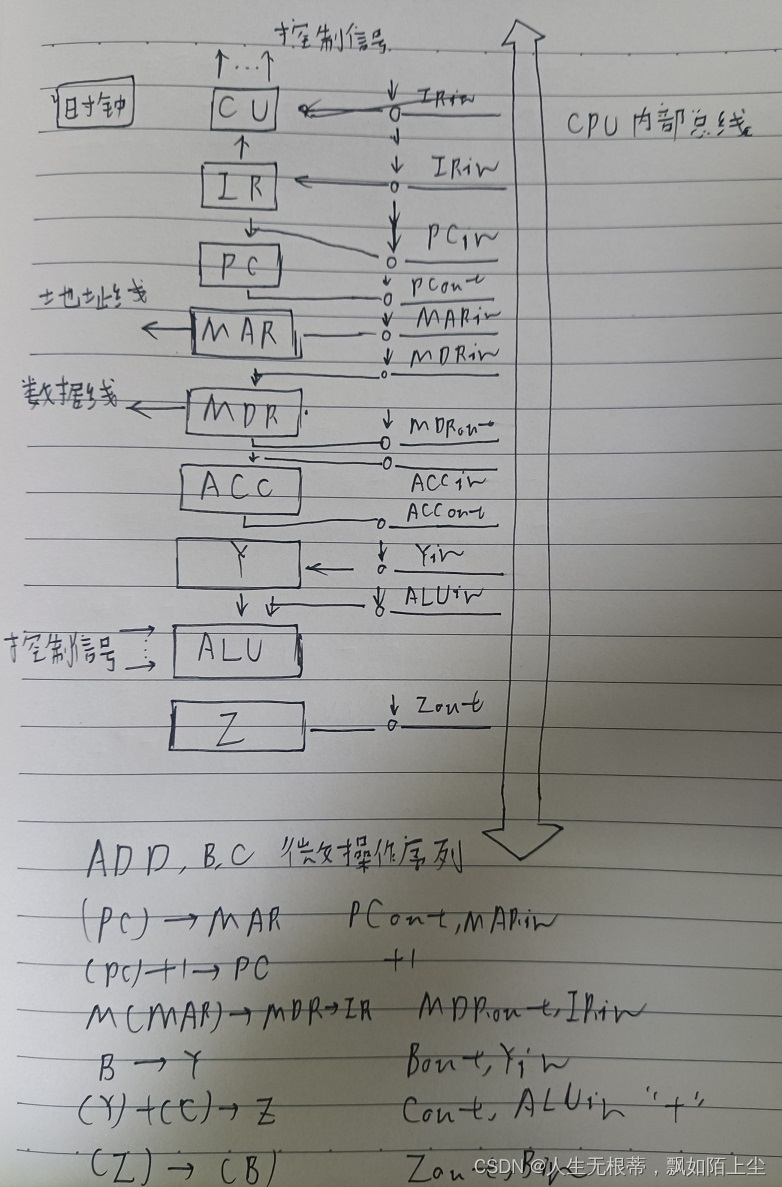 控制信号
↑…↑
时钟
CU
IRin
CPU内部总线
IR
IRin
PC
PCin
PCout
地址线
MAR
MARin
MDRin
数据线
MDR
MDRout
ACC
ACCin
ACCout
Y
Yin
ALUin
控制信号
ALU
Z
Zout
ADD,B,C 微操作序列
(PC)→MAR PCout,MARin
(PC)+1→PC +1
M(MAR)→MDR→IR MDRout,IRin
B→Y Bout,Yin
(Y)+(C)→Z Cout,ALUin "+"
(Z)→(B) Zout,Bin
CSDN @人生无根蒂，飘如陌上尘